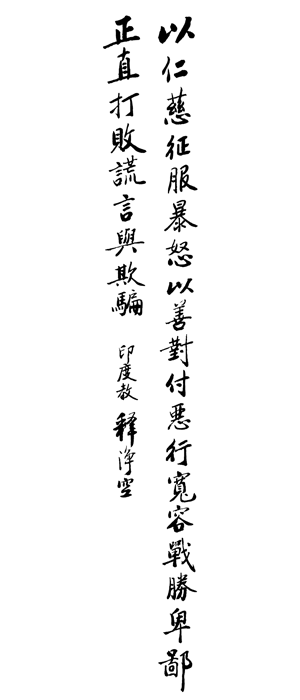 以仁慈征服暴怒以善對付惡行寬容戰勝卑鄙
正直打敗謊言與欺騙 印度教 釋淨空